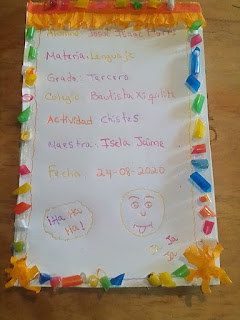 Alumno: José
Materia: Lenguaje
Grado: Tercero
Colegio: Bautista
Actividad Chistes
Maestra: Isela Jaime
Fecha: 24-08-2020
¡Ha Ha
Ha!
Ja Ja
Ja Ja